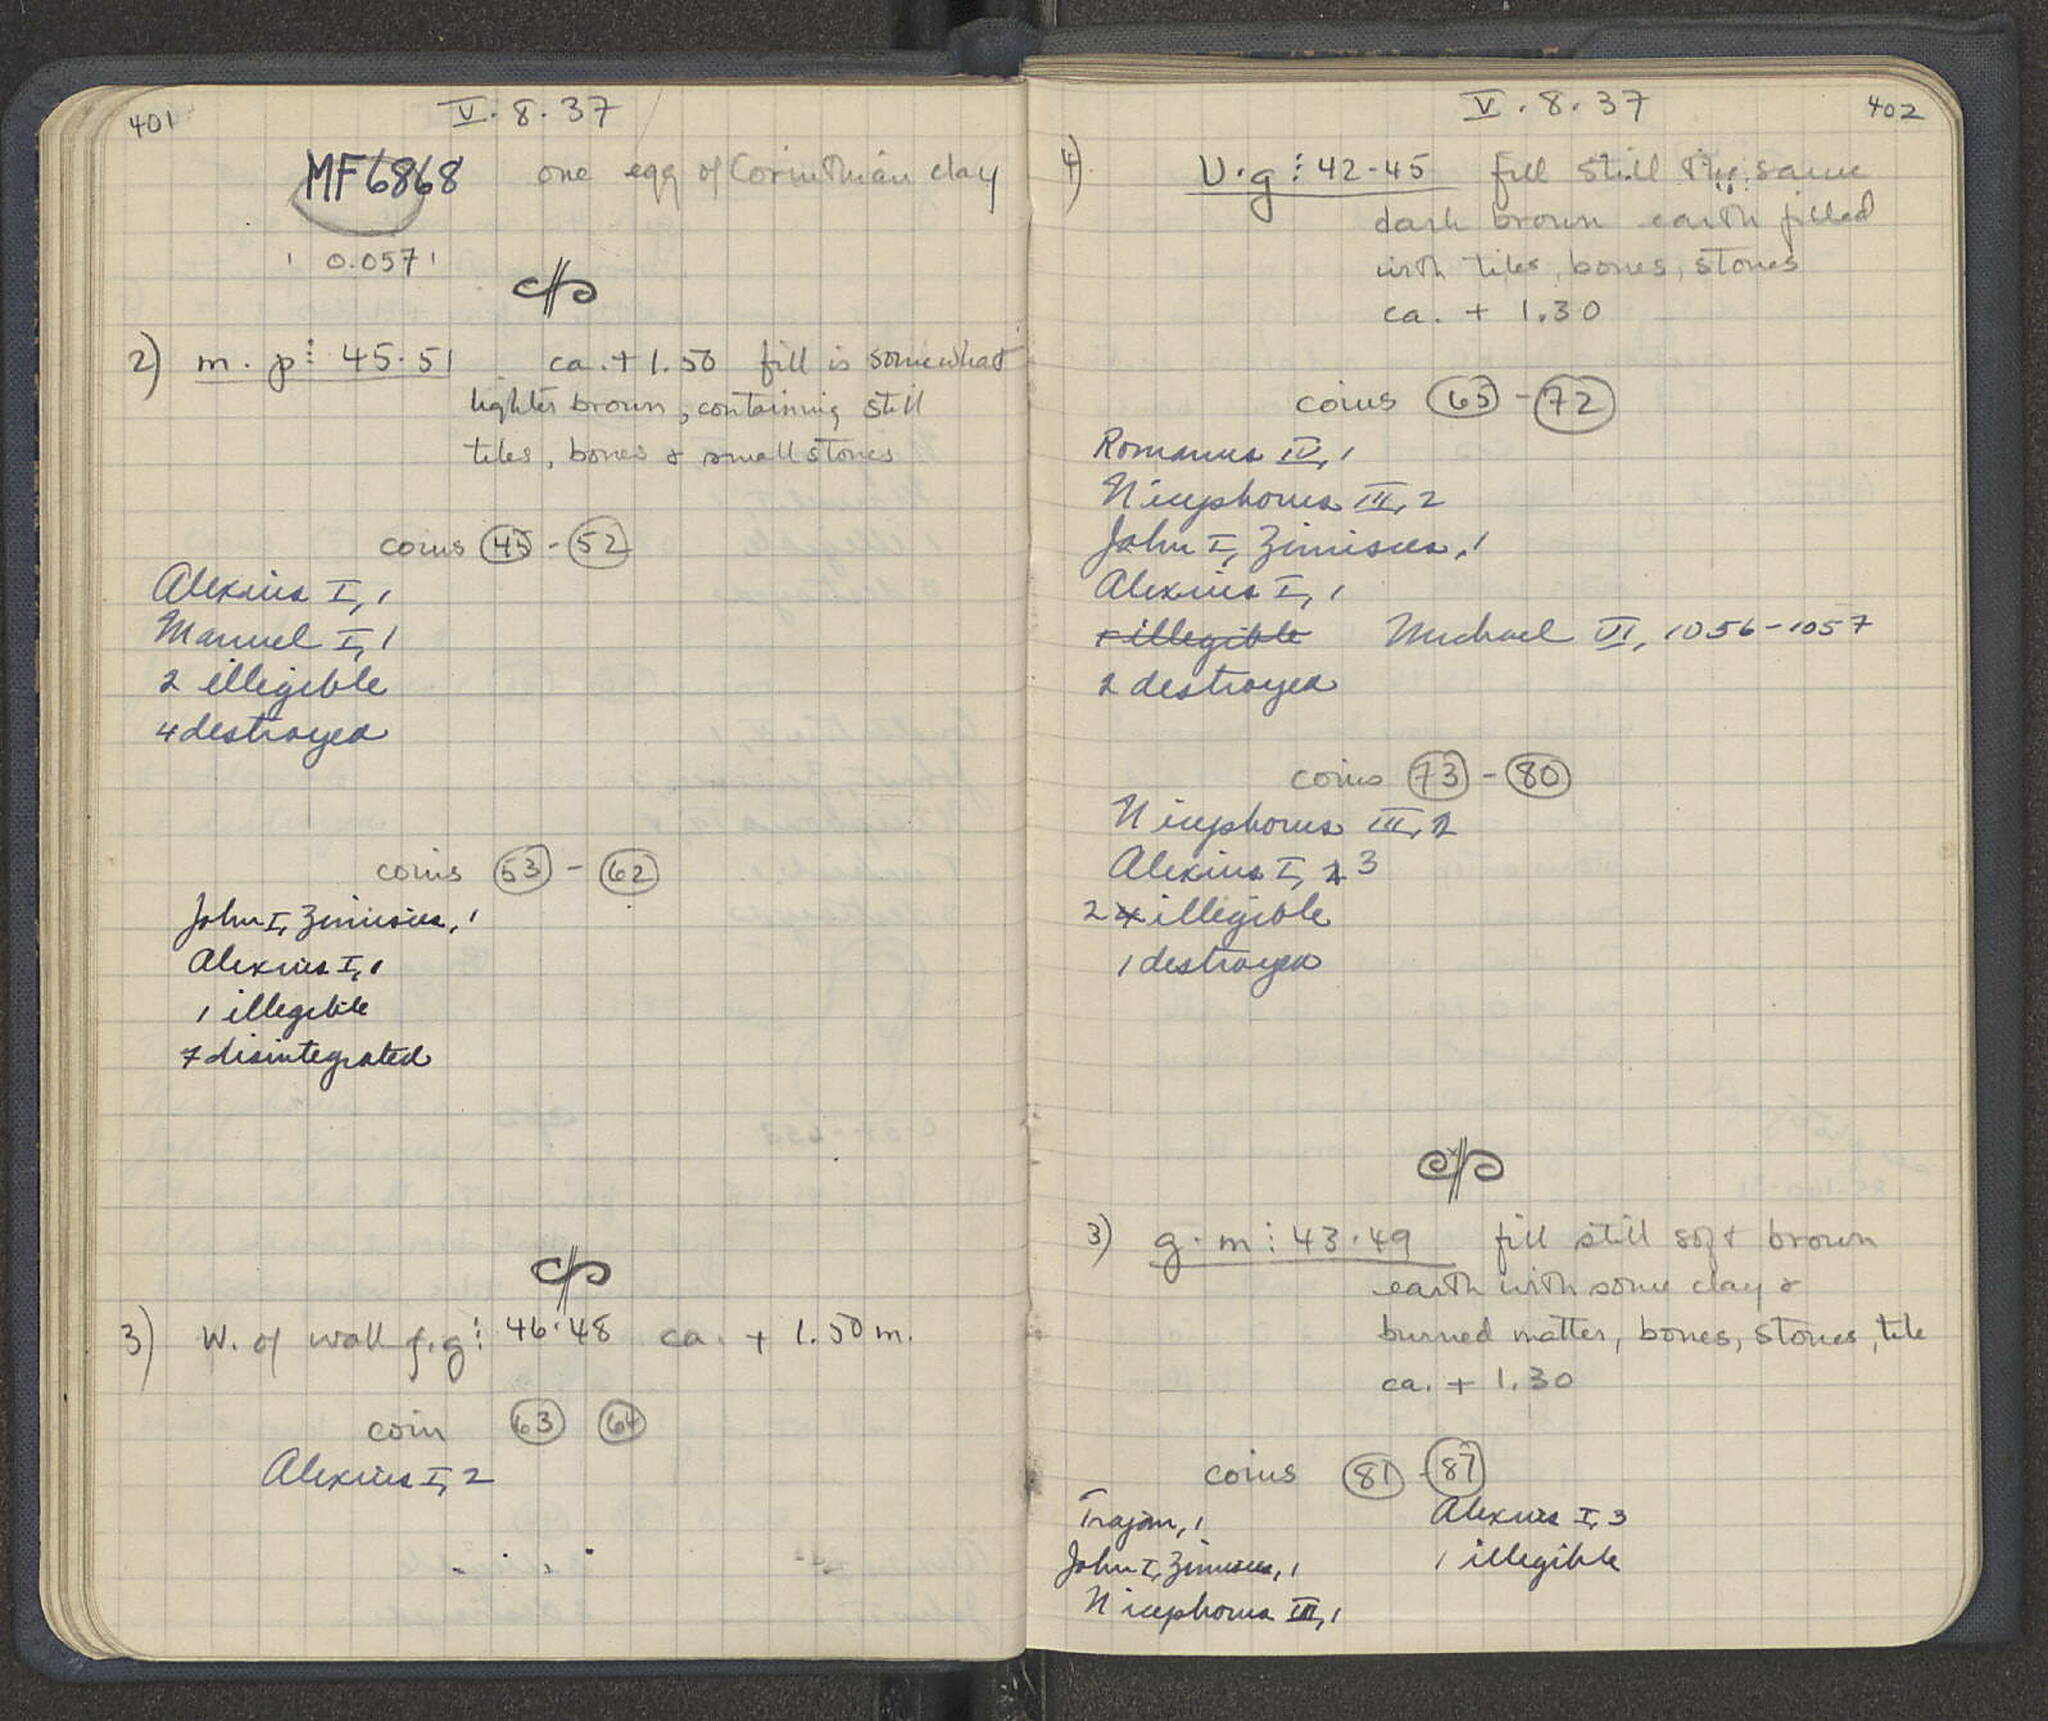 401
V. 8. 37
MF6868 one egg of Corinthian clay
0.057
2) m. p⋮ 45.51 ca. + 1.50 fill is somewhat
lighter brown, containing still
tiles, bones & small stones
coins 45 - 52
Alexius I, 1
Manuel I, 1
2 illegible
4 destroyed
coins 53 - 62
John I, Zimisces, 1
Alexius I, 1
1 illegible
7 disintegrated
3) W. of wall f.g⋮ 46.48 ca. + 1.50 m.
coin 63 64
Alexius I, 2
V. 8. 37
402
4) U.g⋮ 42-45 fill still the same
dark brown earth filled
with tiles, bones, stones
ca. + 1.30
coins 65 - 72
Romanus IV, 1
Nicephorus III, 2
John I, Zimisces, 1
Alexius I, 1
1 illegible Michael VI, 1056-1057
2 destroyed
coins 73 - 80
Nicephorus III, 2
Alexius I, 3
2 illegible
1 destroyed
3) g. m⋮ 43.49 fill still soft brown
earth with some clay &
burned matter, bones, stones, tile
ca. + 1.30
coins 81 - 87
Trajan, 1
John I, Zimisces, 1
Nicephorus III, 1
Alexius I, 3
1 illegible